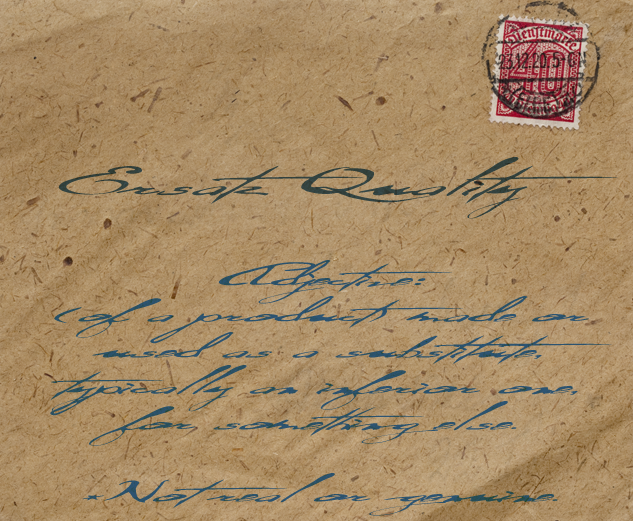 Dienstmarke
40
Ersatz Quality
Adjective:
(of a product) made or
used as a substitute,
typically an inferior one,
for something else.
*Not real or genuine.